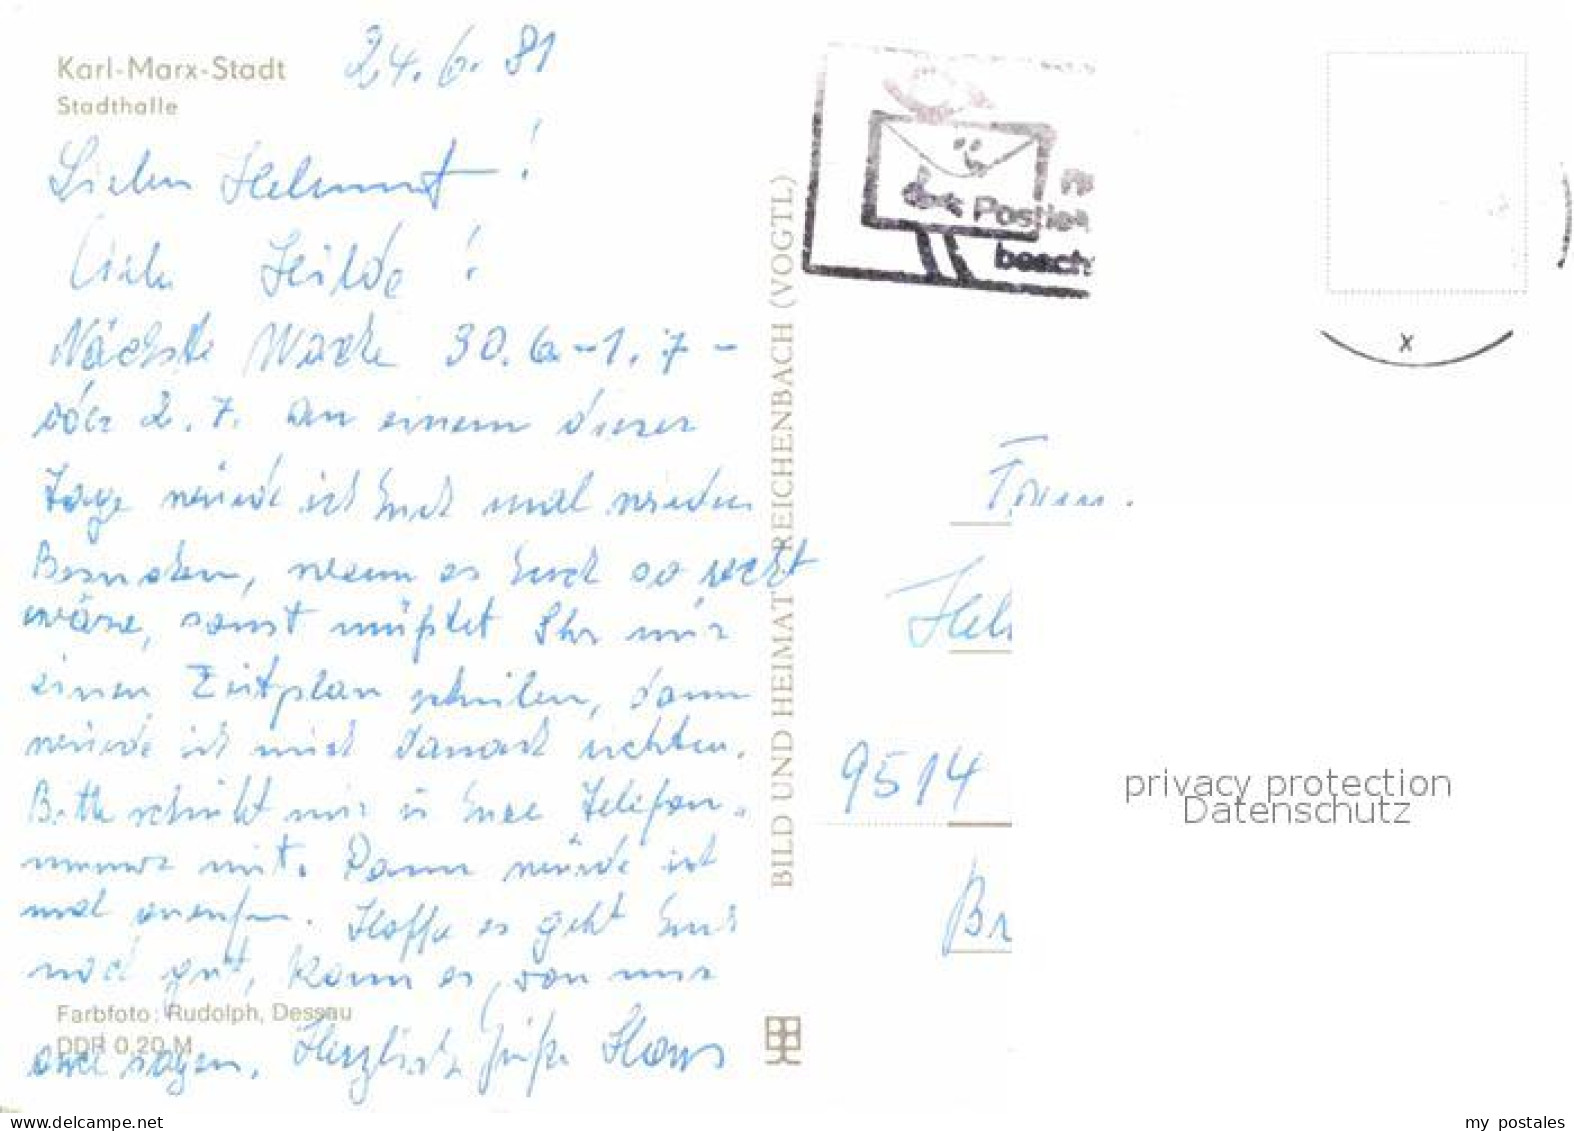 Karl-Marx-Stadt
Stadthalle
24.6.81
Lieber Helmut!
Liebe Hilde!
Nächste Woche 30.6-1.7-
oder 2.7. an einem dieser
Tage würde ich Euch mal wieder
Besuchen, wenn es Euch so recht
wäre, sonst müßtet Ihr mir
einen Zeitplan schreiben, dann
würde ich mich danach richten.
Bitte schickt mir Eure Telefon-
nummer mit. Dann würde ich
mal anrufen. Hoffe es geht Euch
noch gut, kann es von mir
auch sagen. Herzliche Grüße Hans
Farbfoto: Rudolph, Dessau
DDR 0,20 M
BILD UND HEIMAT REICHENBACH (VOGTL)
Postle
beach
x
Fam.
Hel
9514
Br
privacy protection
Datenschutz
delcampe.net
my postales